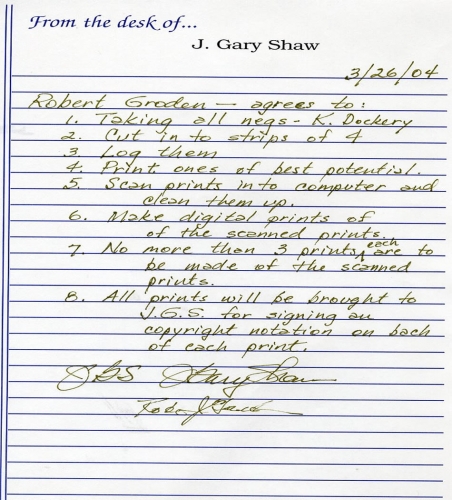 From the desk of...
J. Gary Shaw
3/26/04
Robert Groden — agrees to:
1. Taking all negs - K. Dockery
2. Cut in to strips of 4
3. Log them
4. Print ones of best potential.
5. Scan prints in to computer and
clean them up.
6. Make digital prints of
of the scanned prints.
7. No more than 3 prints each are to
be made of the scanned
prints.
8. All prints will be brought to
J.G.S. for signing an
copyright notation on back
of each print.
JGS J Gary Shaw